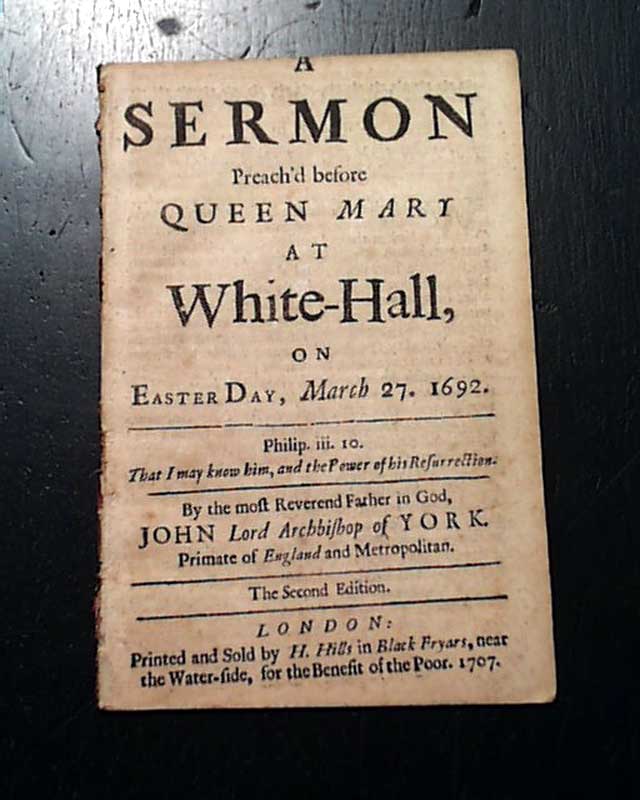 A
SERMON
Preach'd before
QUEEN MARY
AT
White-Hall,
ON
EASTER DAY, March 27. 1692.
Philip. iii. 10.
That I may know him, and the Power of his Reſurrection.
By the moſt Reverend Father in God,
JOHN Lord Archbiſhop of YORK.
Primate of England and Metropolitan.
The Second Edition.
LONDON:
Printed and Sold by H. Hills in Black Fryars, near
the Water-ſide, for the Benefit of the Poor. 1707.